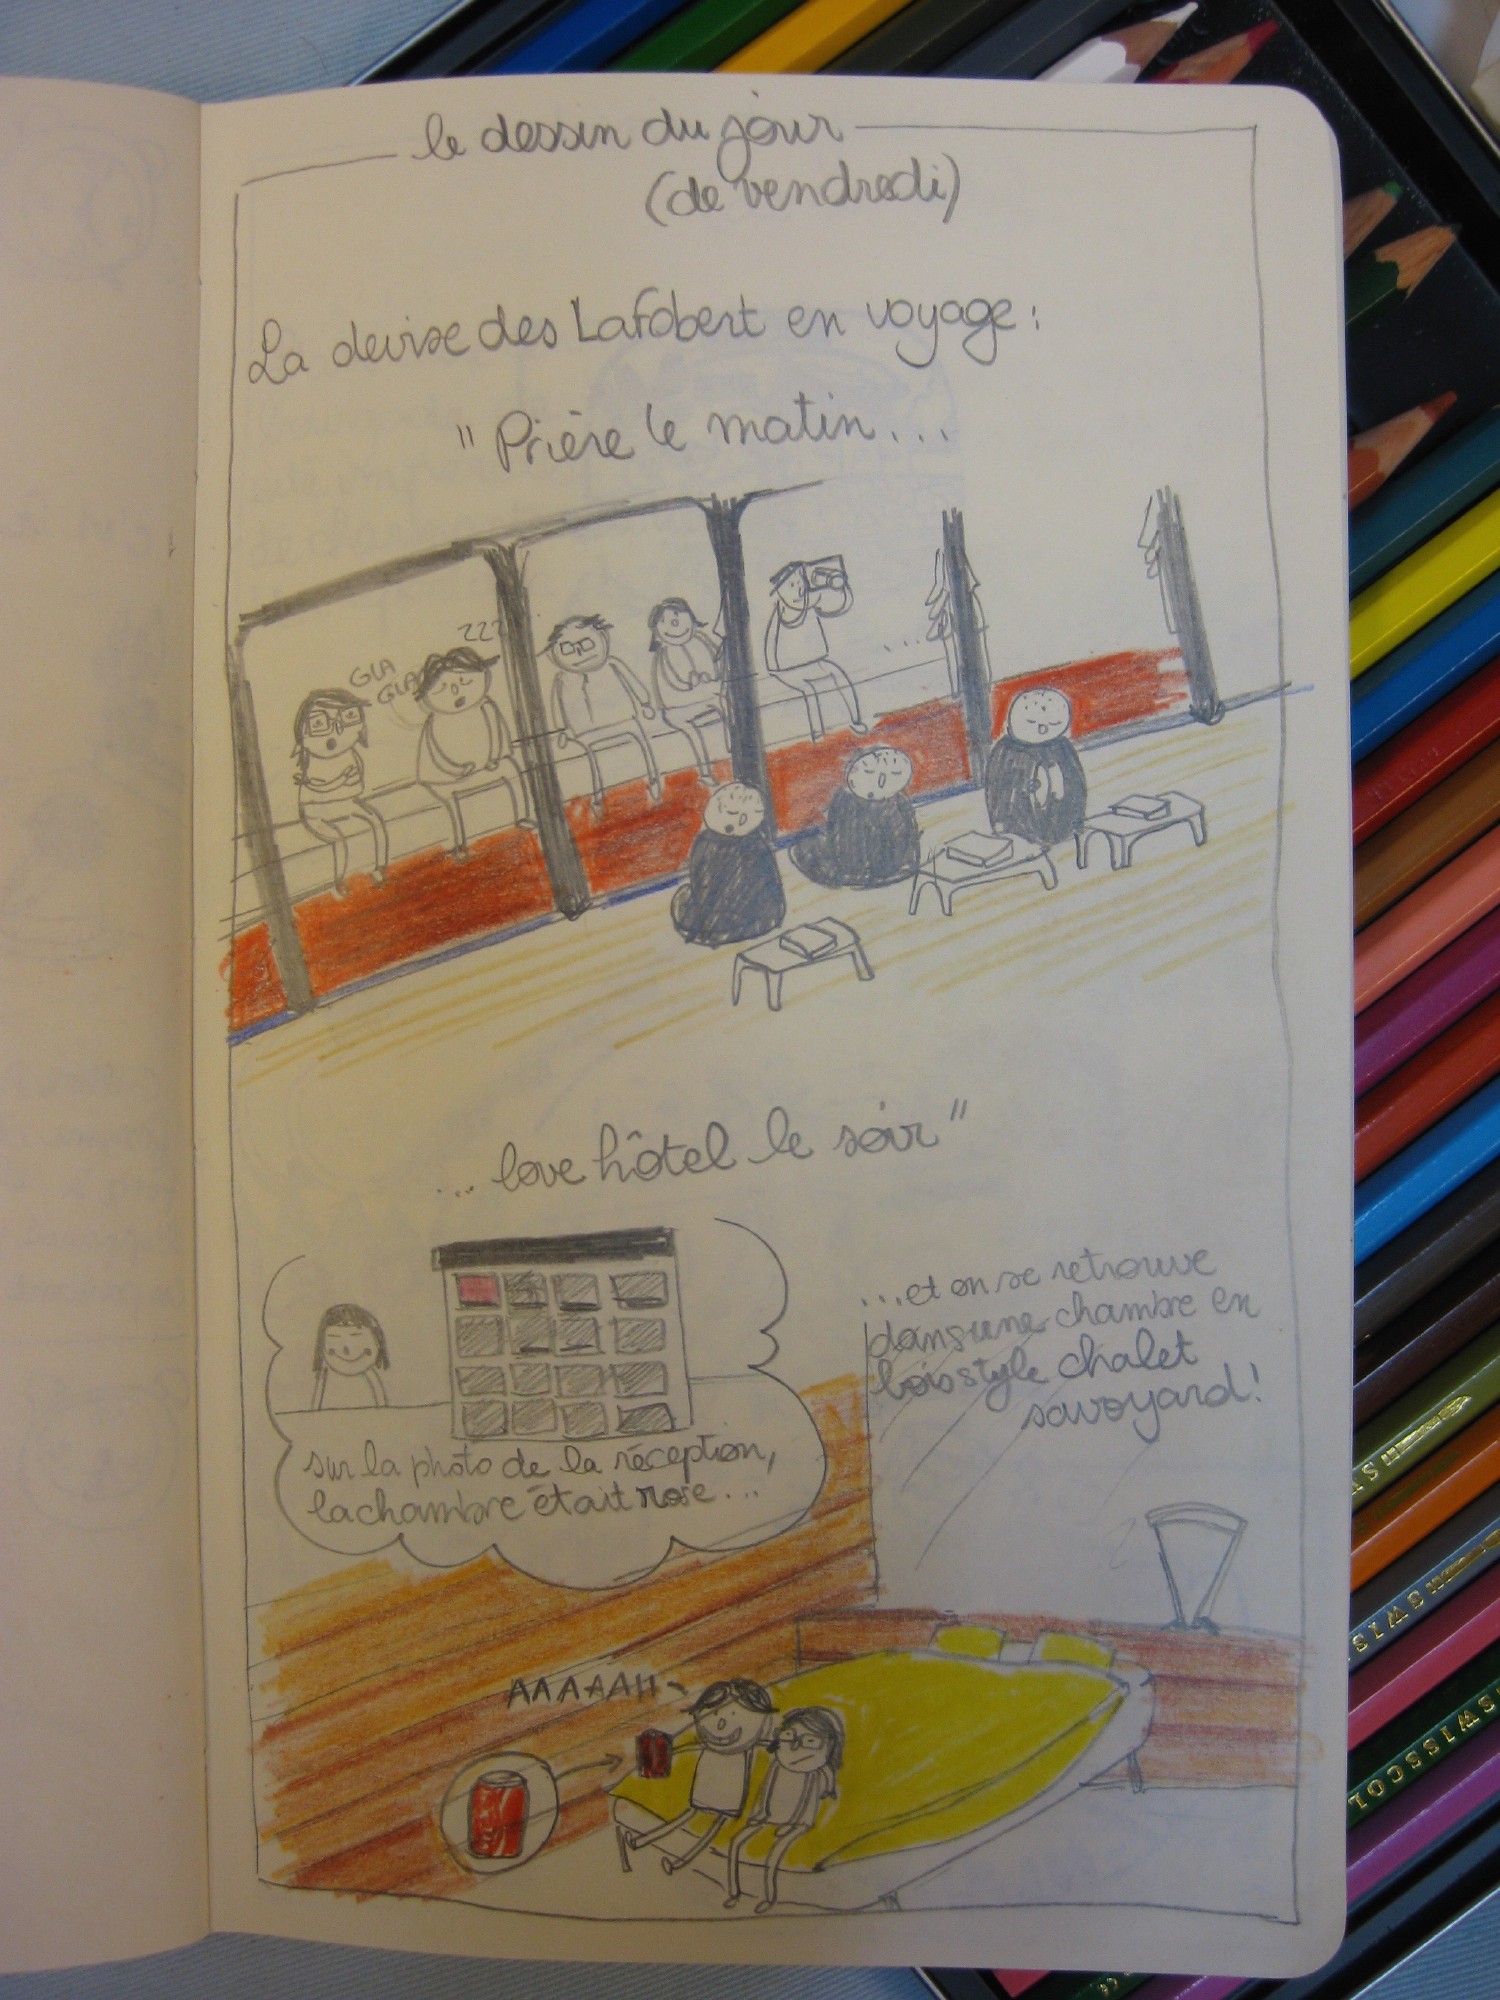 le dessin du jour
(de vendredi)
La devise des Lafobert en voyage :
" Prière le matin...
GLA
GLA
ZZZ
... love hôtel le soir "
sur la photo de la réception,
la chambre était rose...
...et on se retrouve
dans une chambre en
bois style chalet
savoyard !
AAAAAH
SWISSCOL
SWIS
S